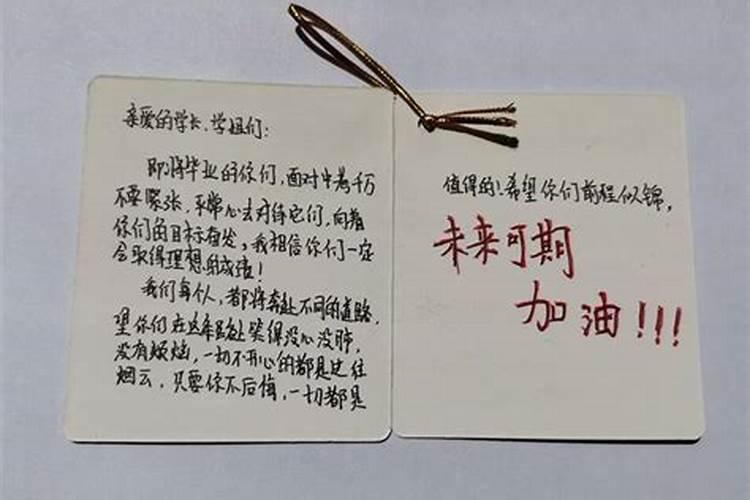 亲爱的学长、学姐们：
即将毕业的你们，面对中考千万
不要紧张，平常心去对待它们，向着
你们的目标奋发，我相信你们一定
会取得理想的成绩！
我们每个人，都将奔赴不同的道路，
望你们在这年龄让笑得没心没肺，
没有烦恼，一切不开心的都是过往
烟云，只要你不后悔，一切都是
值得的！希望你们前程似锦，
未来可期
加油！！！